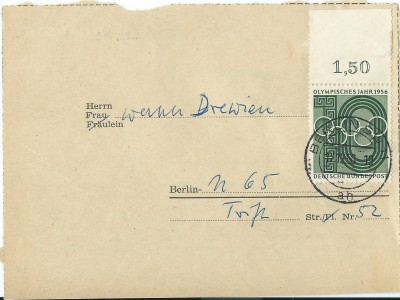 1,50
OLYMPISCHES JAHR 1956
Herrn
Frau Werner Drewien
Fräulein
DEUTSCHE BUNDESPOST
Berlin- N 65
Str./Pl. Nr. 52